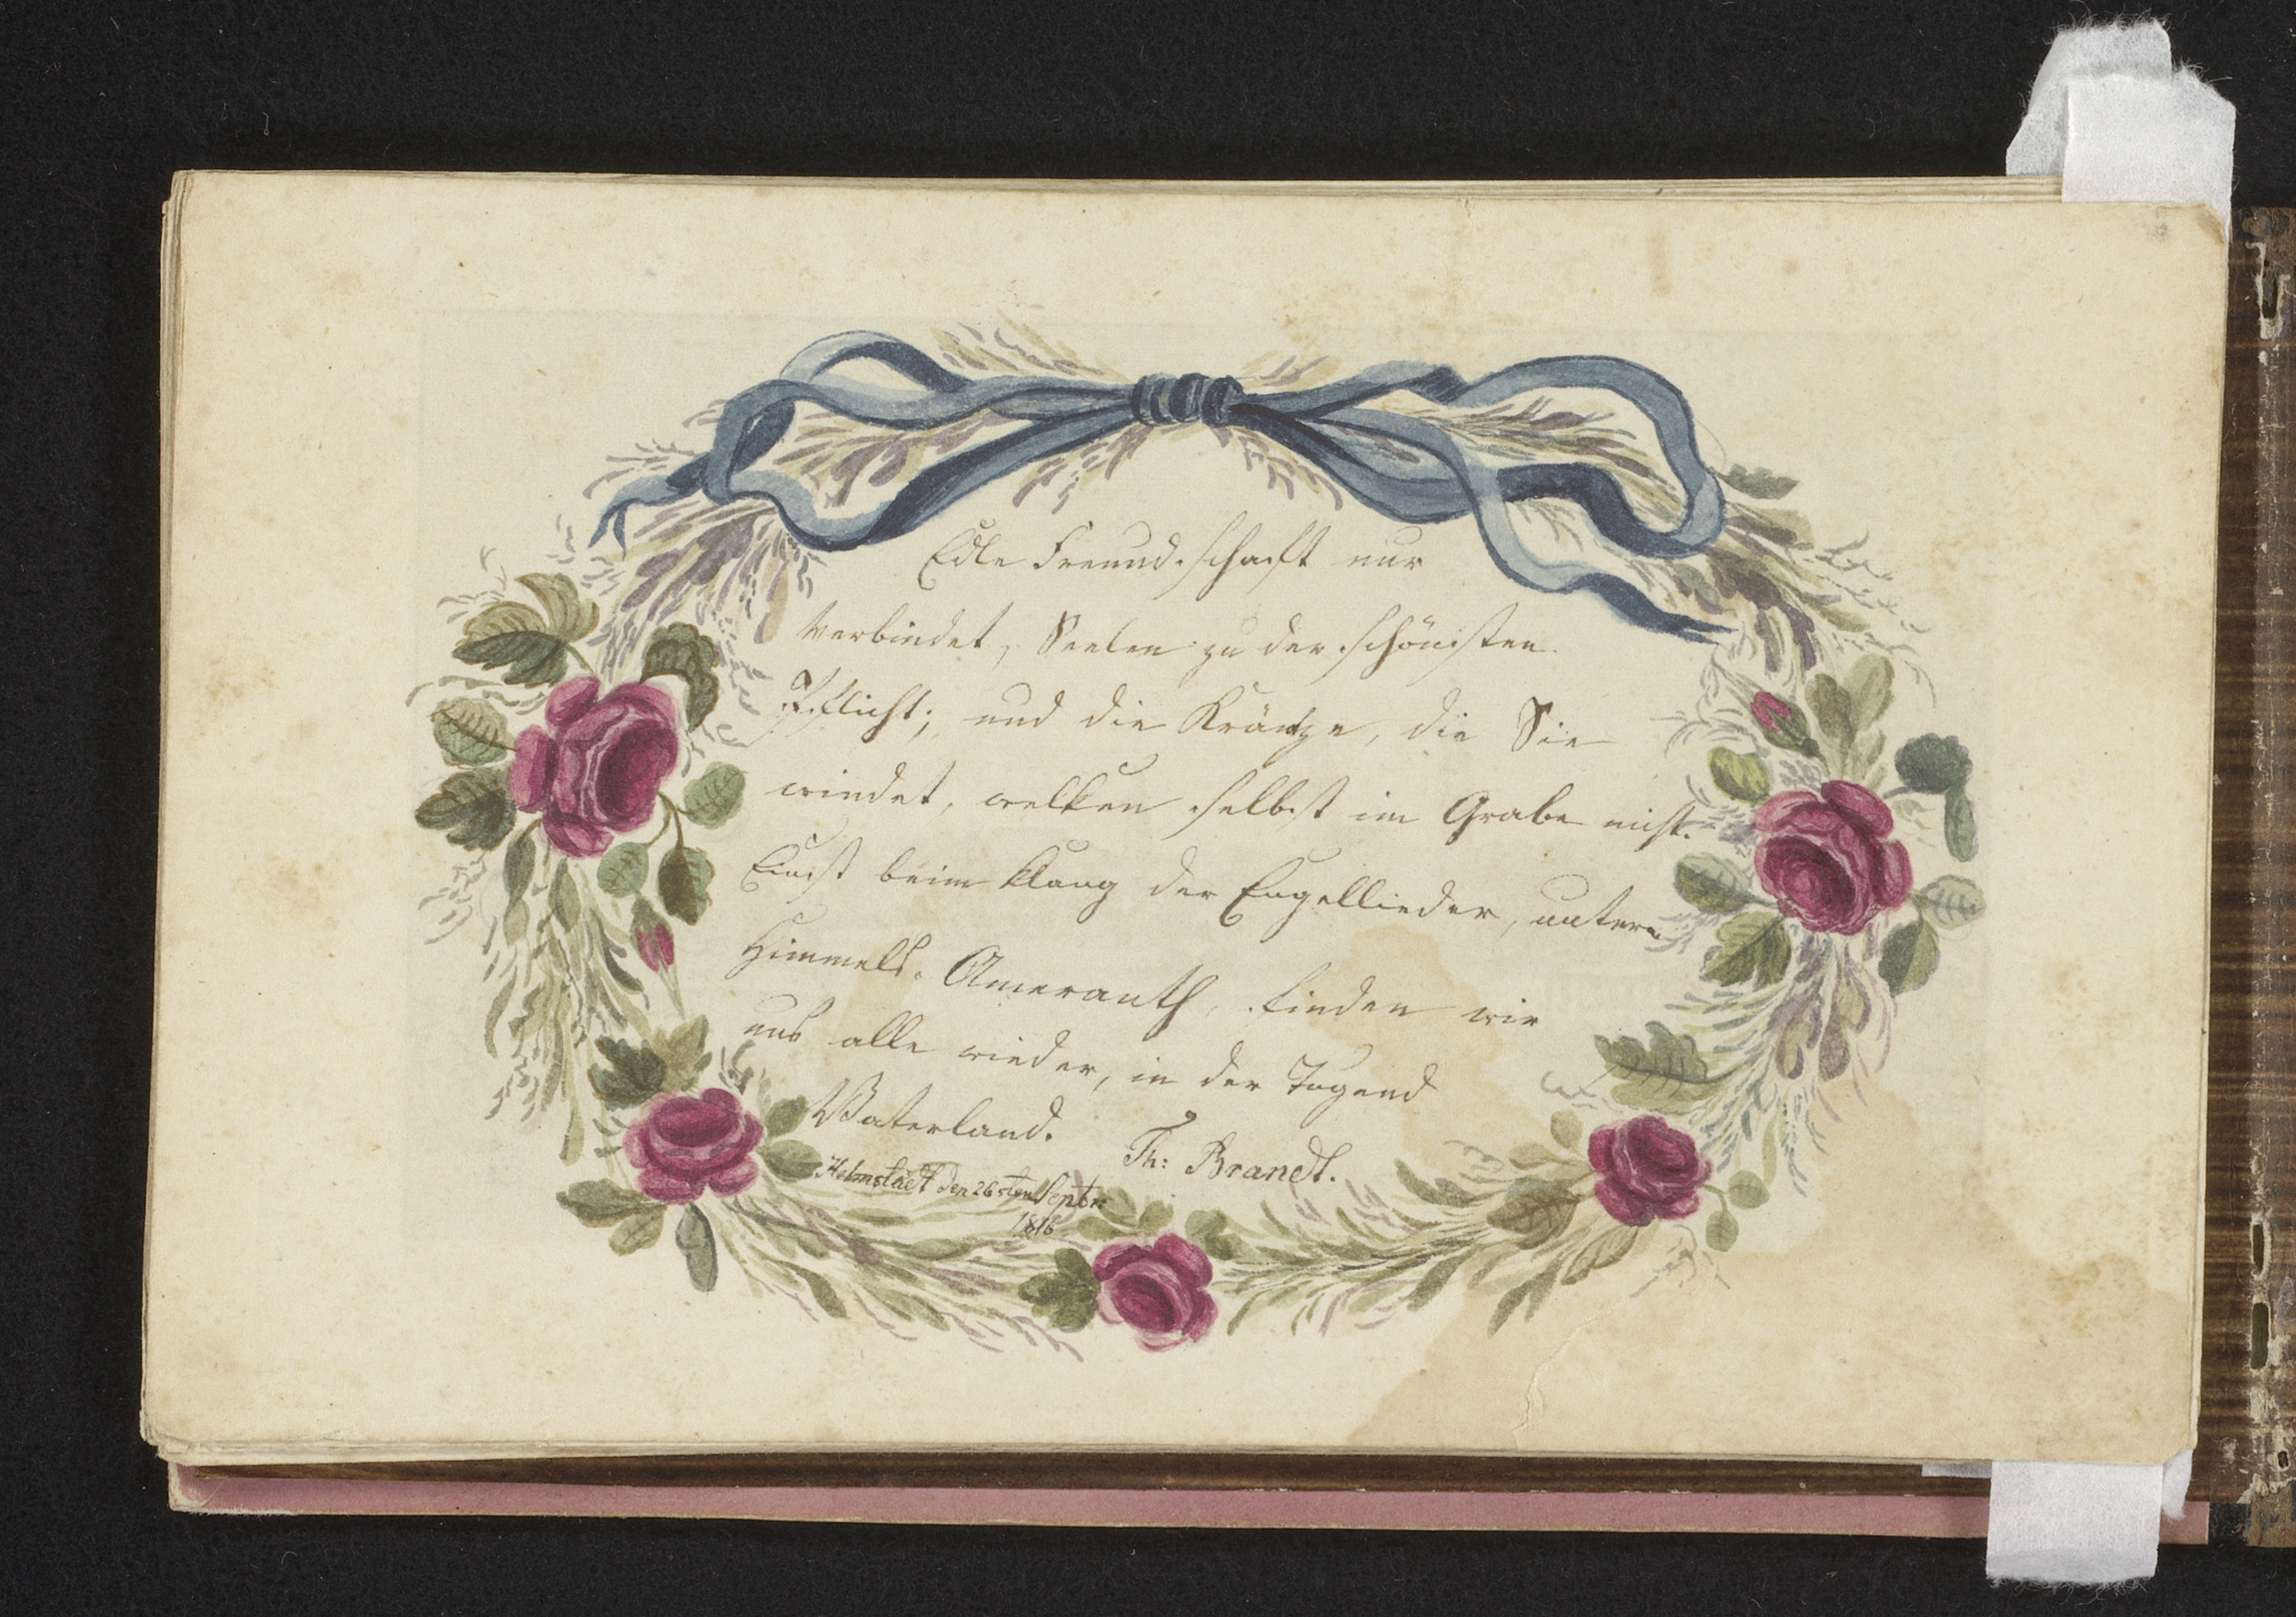 Edle Freundschaft nur
verbindet, Seelen zu der schönsten
Pflicht; und die Kräntze, die Sie
windet, welken selbst im Grabe nicht.
Einst beim Klang der Engellieder, untern
Himmels. Ameranth, finden wir
uns alle wieder, in der Tugend
Vaterland.
Th: Brandt.
Helmstädt den 26sten Septbr
1816